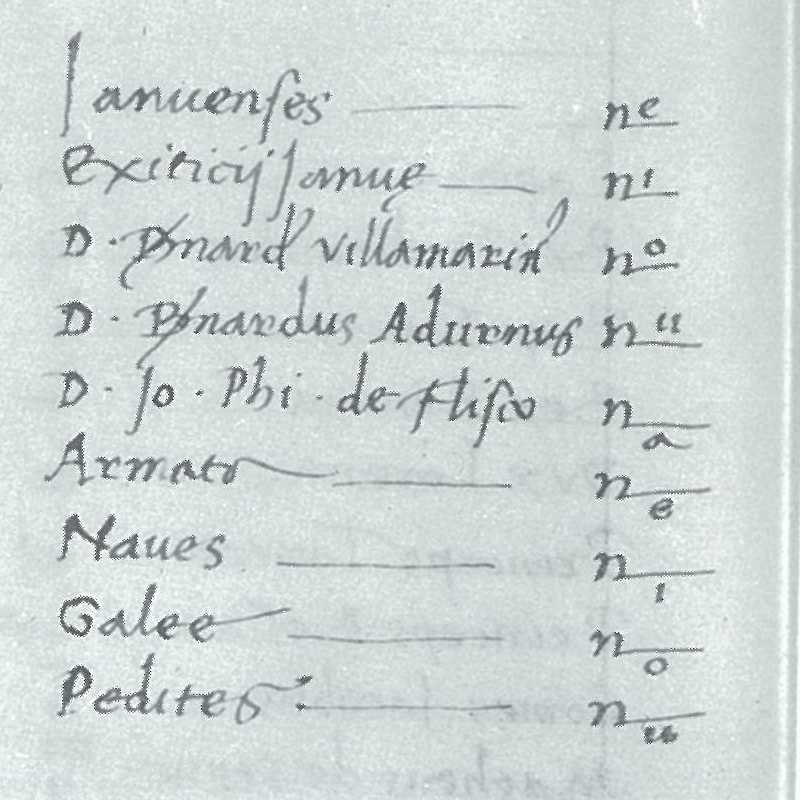 Ianuenses ——— nᵉ
Exiticij Ianue ——— nⁱ
D. Bnard villamarin nᵒ
D. Bnardus Adurnus nᵘ
D. Jo. Phi. de flisco n a
Armata ——— n e
Naues ——— n i
Galee ——— n o
Pedites: ——— n u